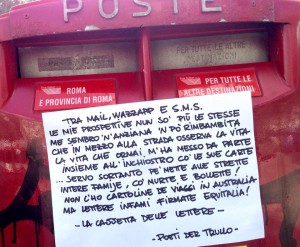 POSTE
PER TUTTE
LE ALTRE
ROMA
E PROVINCIA DI ROMA
PER TUTTE LE
ALTRE DESTINAZIONI
TRA MAIL, WAZZAPP E S.M.S.
LE MIE PROSPETTIVE NUN SO' PIÙ LE STESSE
ME SEMBRO 'N'ANZIANA 'N PÒ RIMBAMBITA
CHE IN MEZZO ALLA STRADA OSSERVA LA VITA-
LA VITA CHE ORMAI M'HA MESSO DA PARTE
INSIEME ALL'INCHIOSTRO CO' LE SUE CARTE
... SERVO SORTANTO PE' METTE ALLE STRETTE
INTERE FAMIJE, CO' MURTE E BOLLETTE!
NON C'HO CARTOLINE DE VIAGGI IN AUSTRALIA
MA LETTERE INFAMI FIRMATE EQUITALIA!
- LA CASSETTA DELLE LETTERE -
- POETI DER TRULLO -